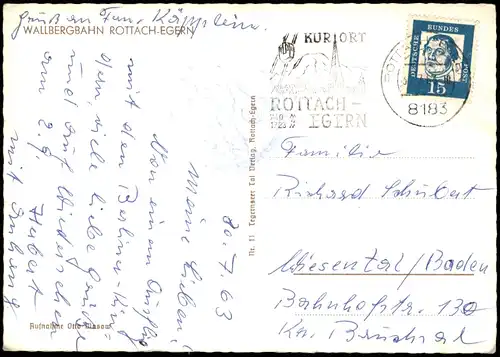 Gruß an Fam. Käpplein.
WALLBERGBAHN ROTTACH-EGERN
30.7.63
Meine Lieben!
Von einem Ausflug
mit den Berliner-
viele liebe Grüße
und auf Wiedersehen
am 2. 8.
Hubert
mit Anhang
Aufnahme Otto
Nr. 11 Tegernseer Tal Verlag, Rottach-Egern
KURORT
ROTTACH-
EGERN
8183
DEUTSCHE BUNDESPOST
15
Familie
Richard Schubert
Wiesental/Baden
Bahnhofstr. 130
Kr. Bruchsal